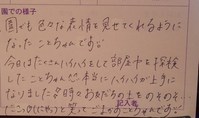 園での様子
園でも色々な表情を見せてくれるように
なったことちゃんです。
今日はたくさんハイハイをして部屋中を探検
したことちゃん。本当にハイハイが上手に
なりました。夕時々おもだちの上をのそのそ…
記入者